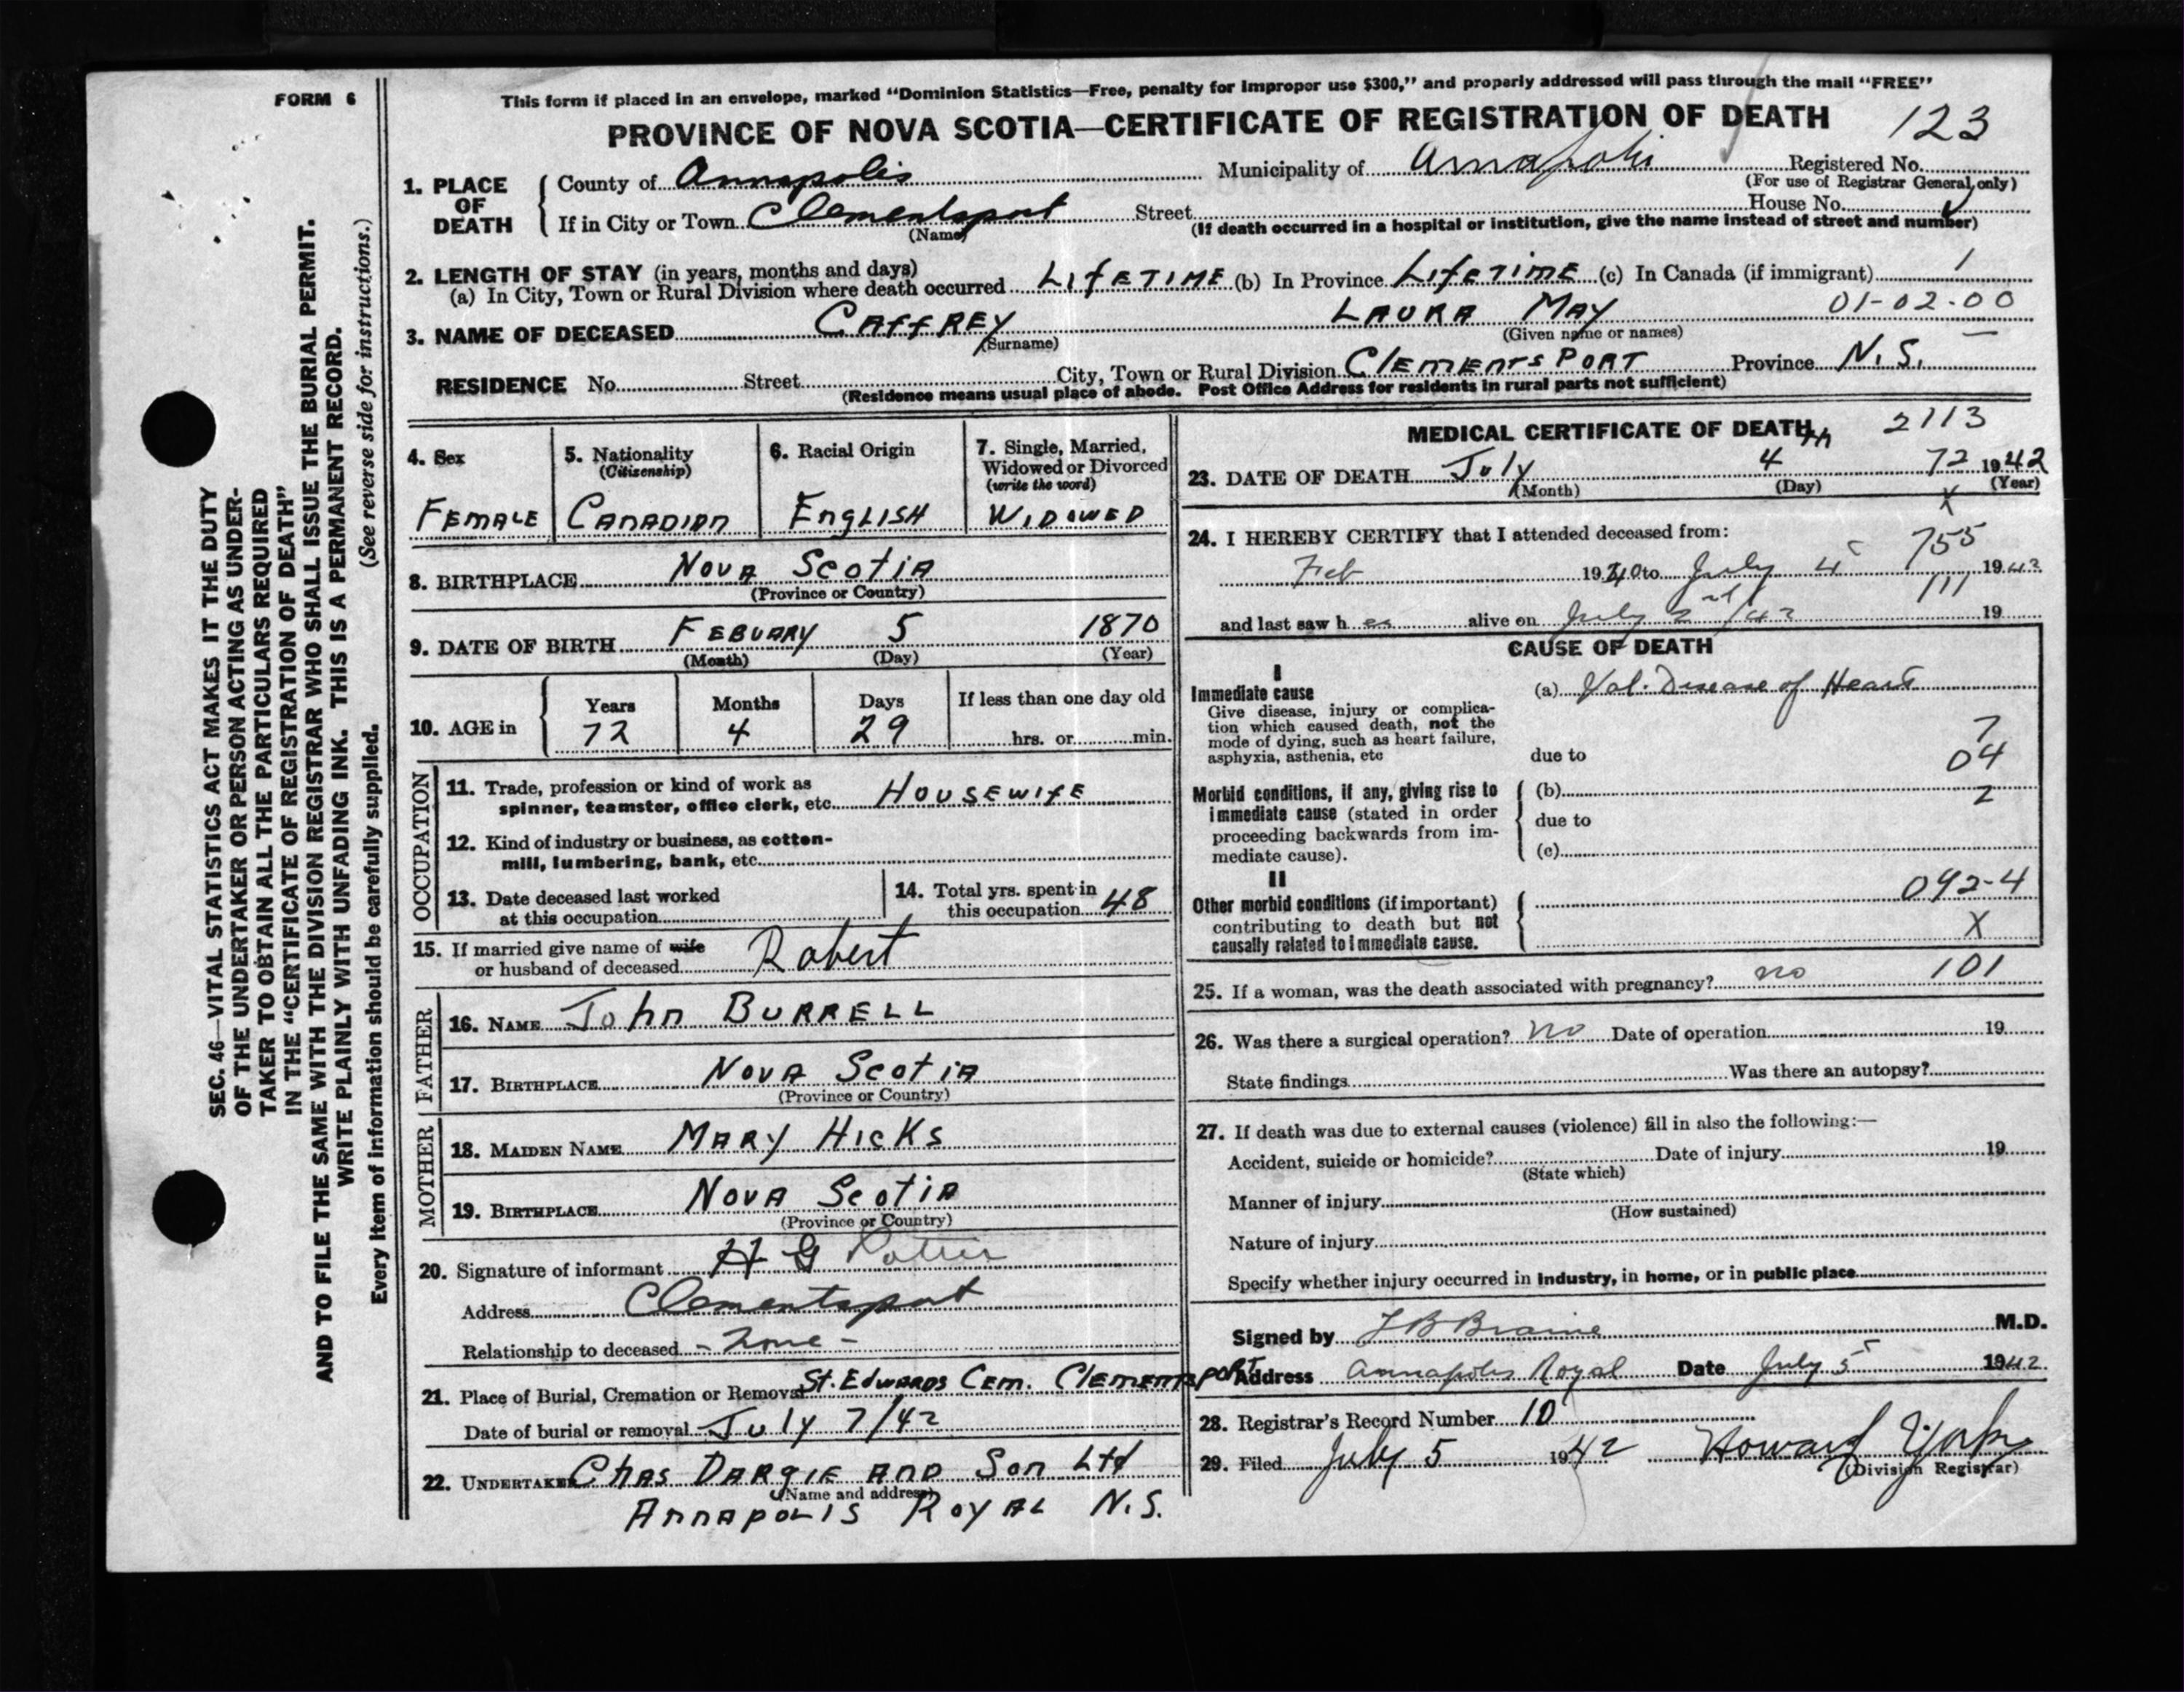 FORM 6
This form if placed in an envelope, marked "Dominion Statistics—Free, penalty for improper use $300," and properly addressed will pass through the mail "FREE"
PROVINCE OF NOVA SCOTIA—CERTIFICATE OF REGISTRATION OF DEATH 123
1. PLACE OF DEATH
County of Annapolis Municipality of Annapolis Registered No.
(For use of Registrar General only)
If in City or Town Clementsport Street House No.
(Name) (If death occurred in a hospital or institution, give the name instead of street and number)
2. LENGTH OF STAY (in years, months and days)
(a) In City, Town or Rural Division where death occurred LifeTIME (b) In Province LifeTIME (c) In Canada (if immigrant) 1
01-02-00
3. NAME OF DECEASED CAffREY LAURA MAY
(Surname) (Given name or names)
RESIDENCE No. Street City, Town or Rural Division ClEMENTS PORT Province N.S.
(Residence means usual place of abode. Post Office Address for residents in rural parts not sufficient)
4. Sex
FEMALE
5. Nationality
(Citizenship)
CANADIAN
6. Racial Origin
ENGLISH
7. Single, Married, Widowed or Divorced
(write the word)
WIDOWED
8. BIRTHPLACE NOVA ScotiA
(Province or Country)
9. DATE OF BIRTH FEBUARY 5 1870
(Month) (Day) (Year)
10. AGE in
Years Months Days If less than one day old
72 4 29 hrs. or min.
OCCUPATION
11. Trade, profession or kind of work as
spinner, teamster, office clerk, etc. HOUSEWIfE
12. Kind of industry or business, as cotton-
mill, lumbering, bank, etc.
13. Date deceased last worked
at this occupation
14. Total yrs. spent in
this occupation 48
15. If married give name of wife
or husband of deceased Robert
FATHER
16. NAME John BURRELL
17. BIRTHPLACE NOVA ScotiA
(Province or Country)
MOTHER
18. MAIDEN NAME MARY HICKS
19. BIRTHPLACE NOVA ScotiA
(Province or Country)
20. Signature of informant H G
Address Clementsport
Relationship to deceased - None -
21. Place of Burial, Cremation or Removal St. EdwARDS CEM. ClEMENTSPORT
Date of burial or removal July 7/42
22. UNDERTAKER Chas DARgIE AND Son Ltd
(Name and address)
ANNAPOLIS ROYAL N.S.
MEDICAL CERTIFICATE OF DEATH 2113
23. DATE OF DEATH July 4th 72 1942
(Month) (Day) (Year)
X
24. I HEREBY CERTIFY that I attended deceased from: 755
Feb 1940 to July 4 1942
111
and last saw her alive on July 2nd/42 19
CAUSE OF DEATH
I
Immediate cause
Give disease, injury or complica-
tion which caused death, not the
mode of dying, such as heart failure,
asphyxia, asthenia, etc
(a) Val. Disease of Heart
7
due to 04
Morbid conditions, if any, giving rise to
immediate cause (stated in order
proceeding backwards from im-
mediate cause).
(b) 2
due to
(c)
II
Other morbid conditions (if important)
contributing to death but not
causally related to immediate cause.
092-4
X
25. If a woman, was the death associated with pregnancy? no 101
26. Was there a surgical operation? no Date of operation 19
State findings Was there an autopsy?
27. If death was due to external causes (violence) fill in also the following:—
Accident, suicide or homicide? Date of injury 19
(State which)
Manner of injury
(How sustained)
Nature of injury
Specify whether injury occurred in industry, in home, or in public place
Signed by Braine M.D.
Address Annapolis Royal Date July 5 1942
28. Registrar's Record Number 10
29. Filed July 5 1942 Howard
(Division Registrar)
SEC. 46—VITAL STATISTICS ACT MAKES IT THE DUTY
OF THE UNDERTAKER OR PERSON ACTING AS UNDER-
TAKER TO OBTAIN ALL THE PARTICULARS REQUIRED
IN THE "CERTIFICATE OF REGISTRATION OF DEATH"
AND TO FILE THE SAME WITH THE DIVISION REGISTRAR WHO SHALL ISSUE THE BURIAL PERMIT.
WRITE PLAINLY WITH UNFADING INK. THIS IS A PERMANENT RECORD.
Every item of information should be carefully supplied. (See reverse side for instructions.)